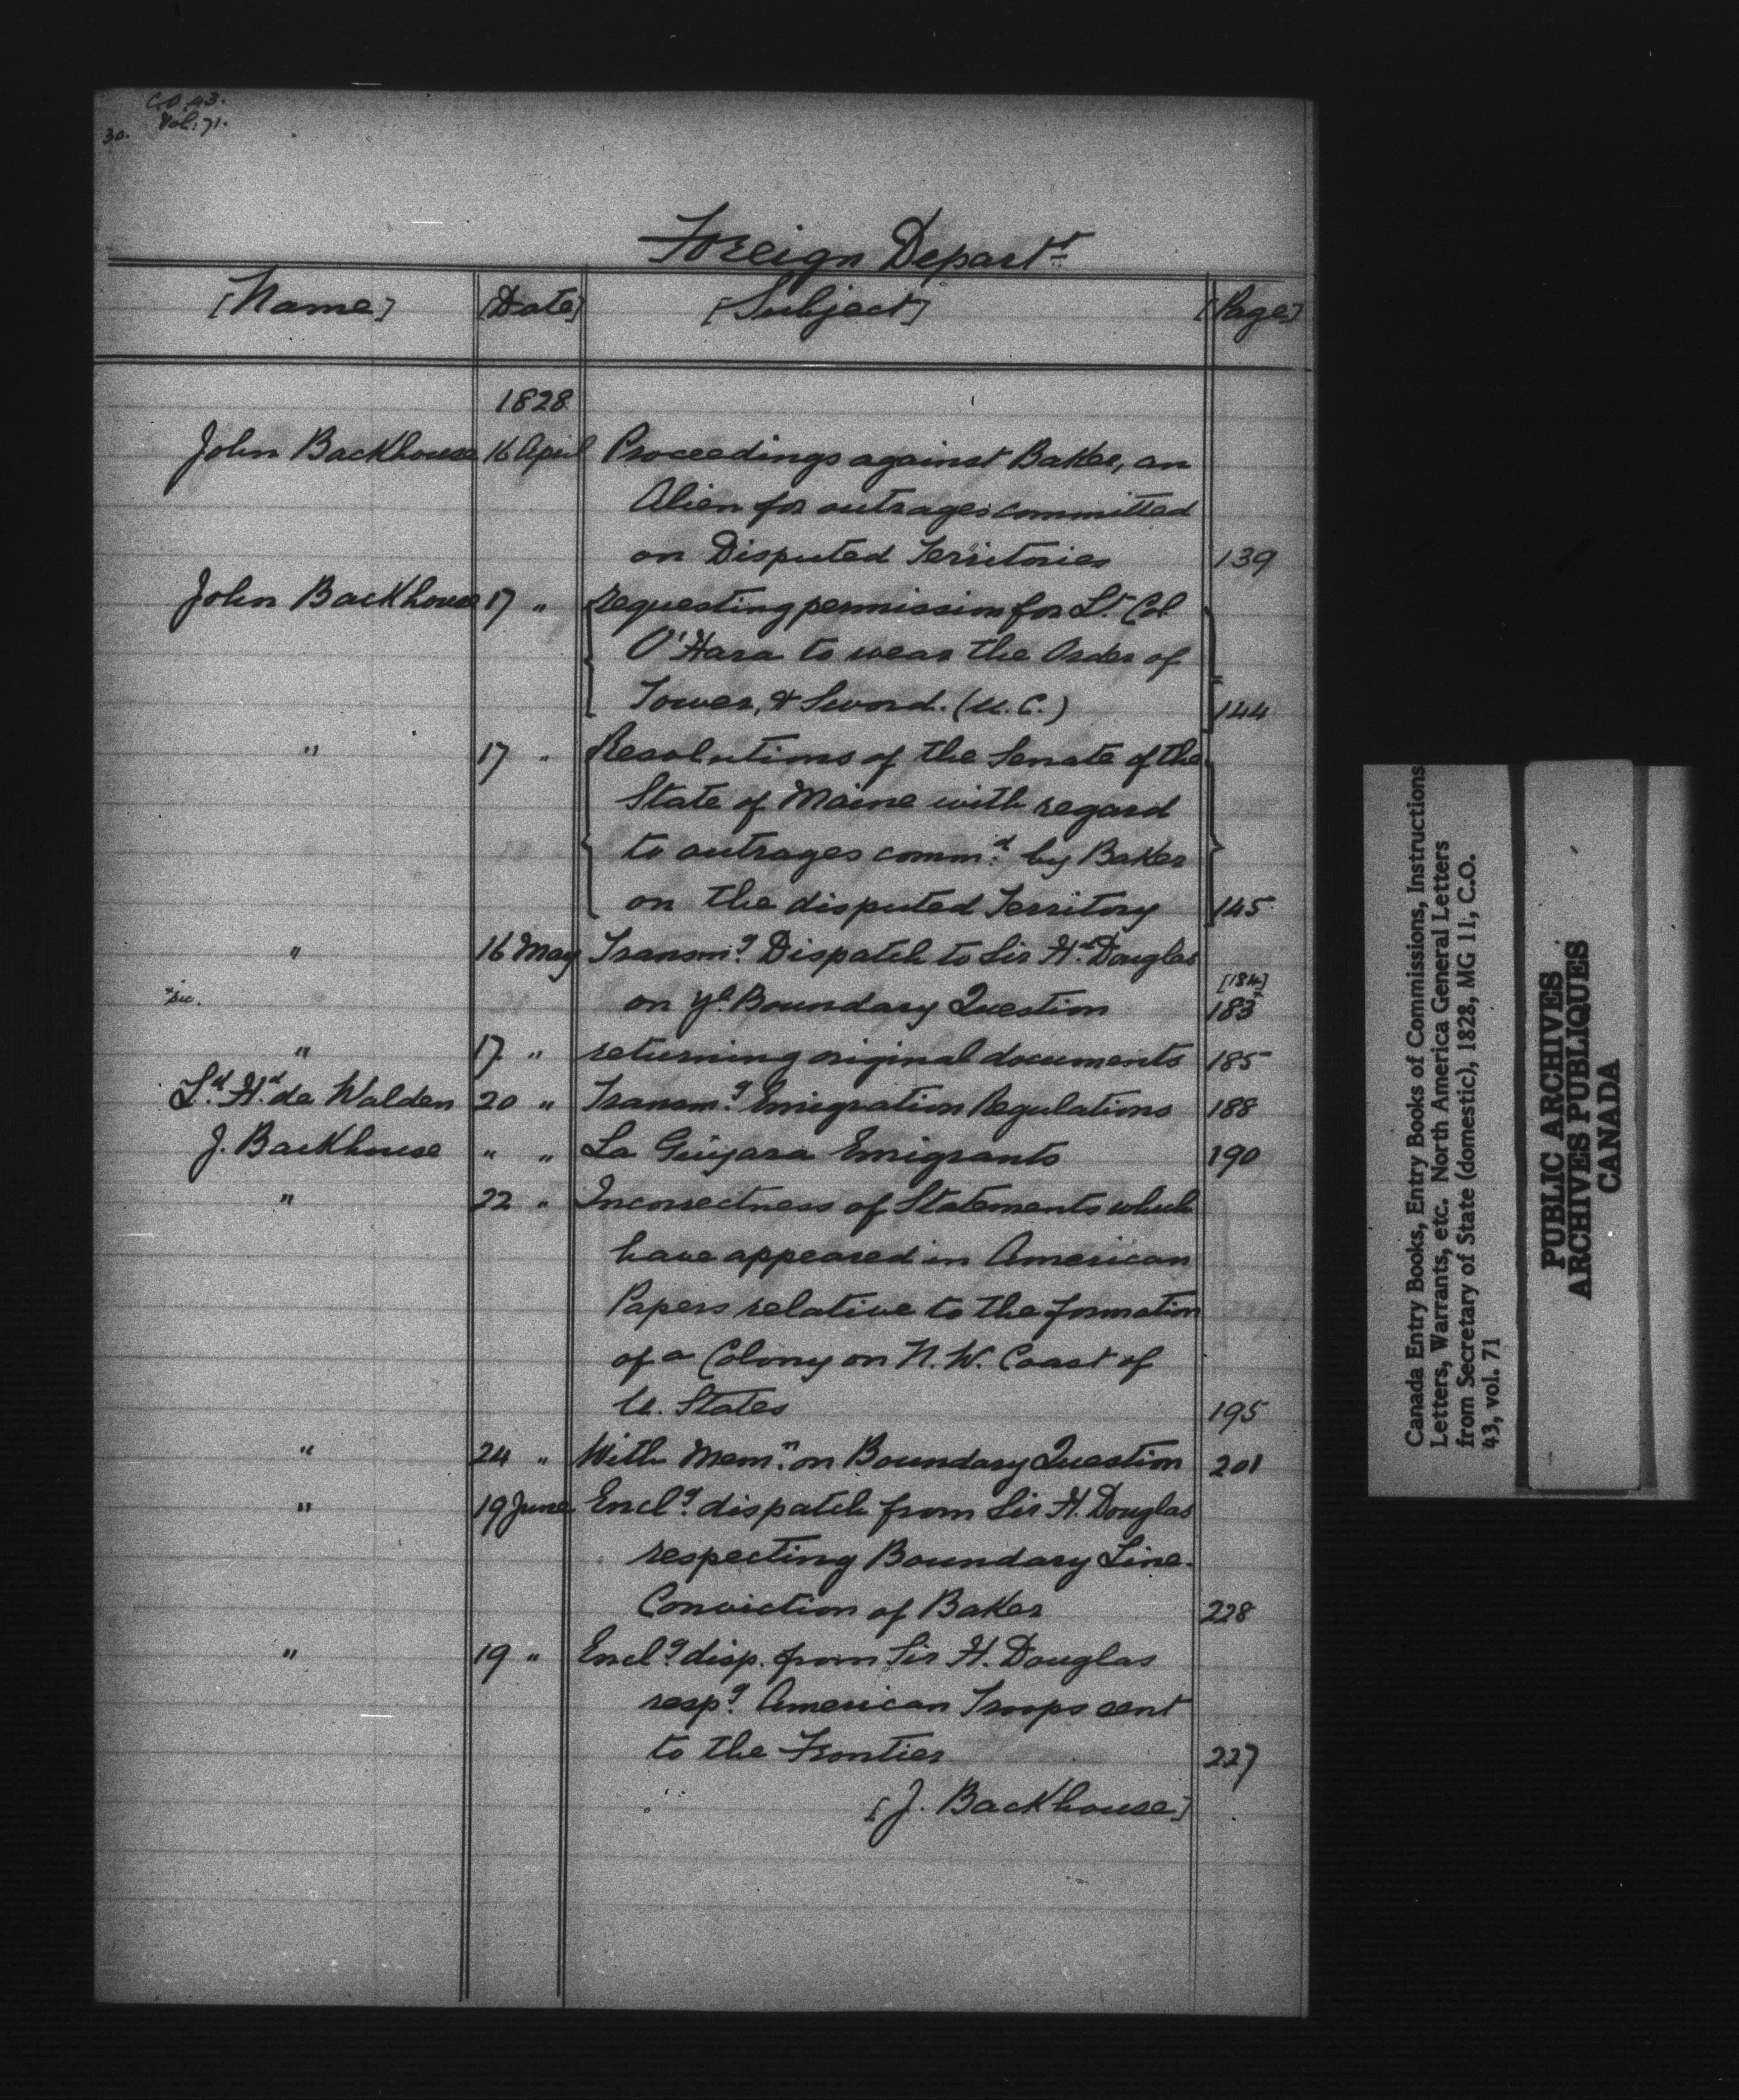 C.O. 43.
30. Vol: 71.
Foreign Depart.t
[Name] [Date] [Subject] [Page]
1828
John Backhouse 16 April Proceedings against Baker, an
Alien for outrages committed
on Disputed Territories 139
John Backhouse 17 " requesting permission for Lt. Col.
O'Hara to wear the Order of
Tower, & Sword. (U.C.) 144
" 17 " Resolutions of the Senate of the
State of Maine with regard
to outrages comm.d by Baker
on the disputed Territory 145
" 16 May Transm.g Dispatch to Sir H.d Douglas
[184]
*sic. on ye Boundary Question 183*
" 17 " returning original documents 185
L.d H.d de Walden 20 " Transm.g Emigration Regulations 188
J. Backhouse " " La Guyara Emigrants 190
" 22 " Incorrectness of Statements which
have appeared in American
Papers relative to the formation
of a Colony on N.W. Coast of
U. States 195
" 24 " With Mem.n on Boundary Question 201
" 19 June Encl.g dispatch from Sir H. Douglas
respecting Boundary Line.
Conviction of Baker 228
" 19 " Encl.g disp. from Sir H. Douglas
resp.g American Troops sent
to the Frontier 227
[J. Backhouse]
Canada Entry Books, Entry Books of Commissions, Instructions
Letters, Warrants, etc. North America General Letters
from Secretary of State (domestic), 1828, MG 11, C.O.
43, vol. 71
PUBLIC ARCHIVES
ARCHIVES PUBLIQUES
CANADA